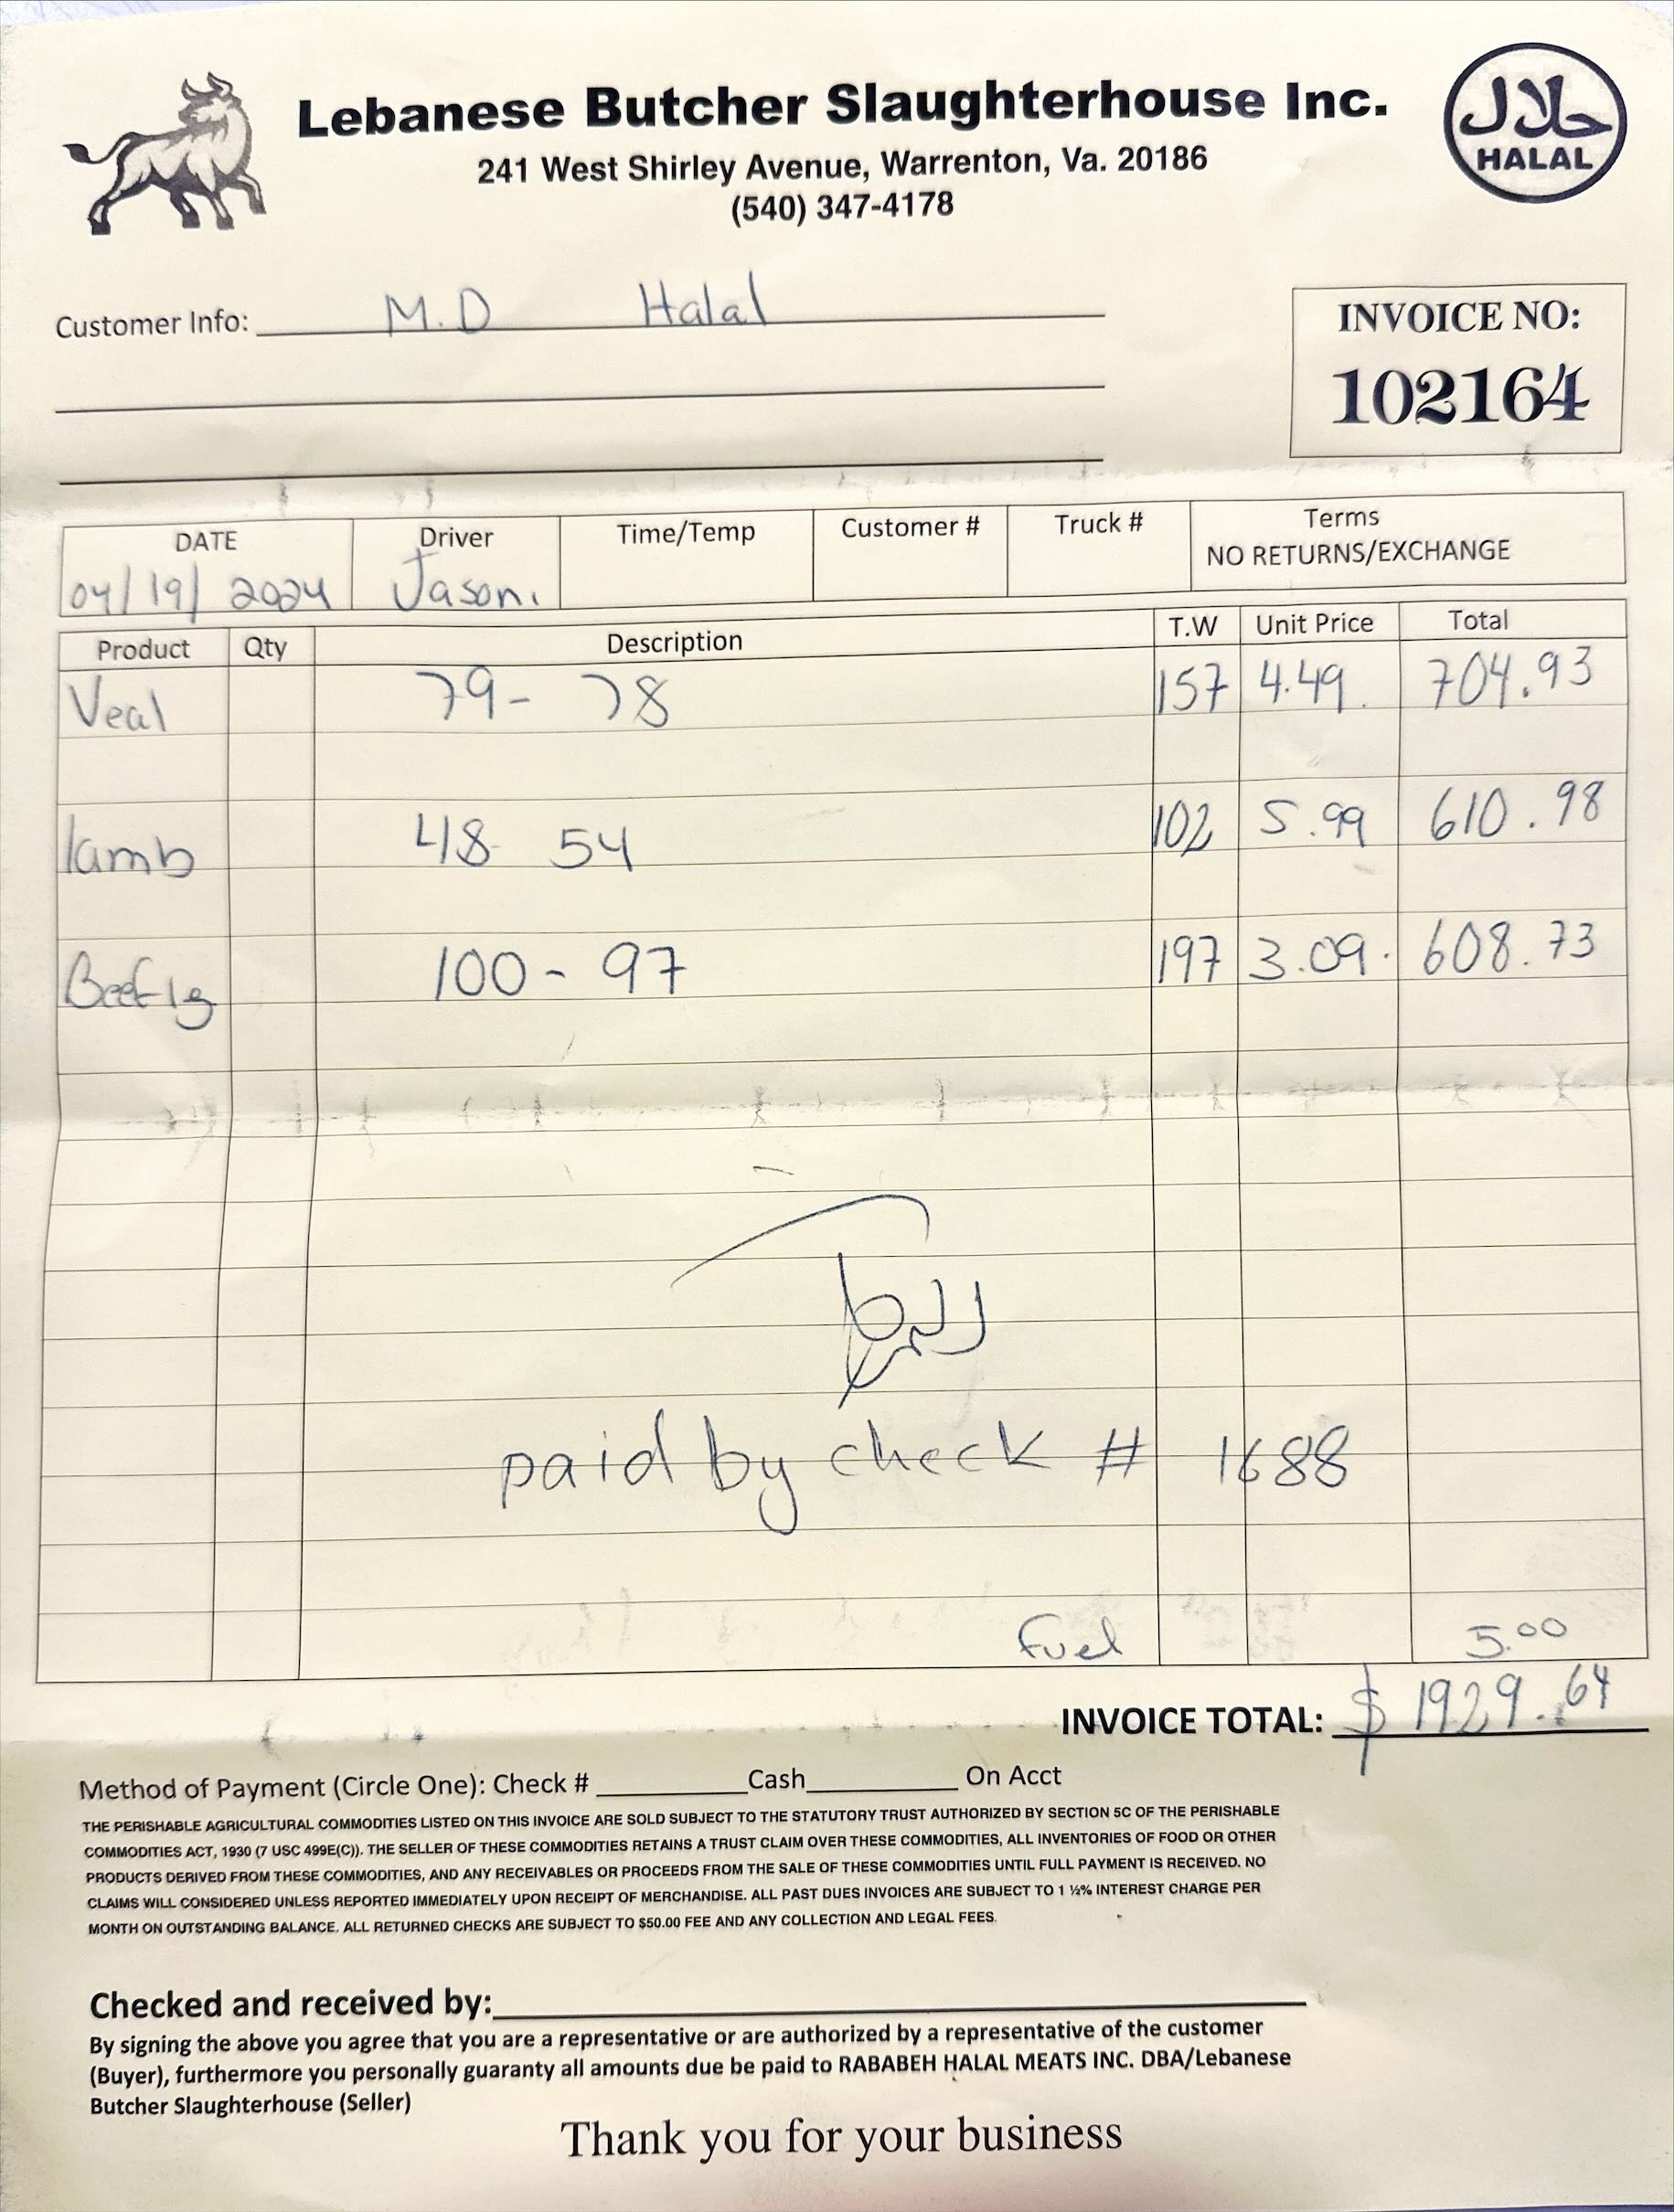 Lebanese Butcher Slaughterhouse Inc.
241 West Shirley Avenue, Warrenton, Va. 20186
(540) 347-4178
حلال
HALAL
Customer Info: M.D Halal
INVOICE NO:
102164
DATE Driver Time/Temp Customer # Truck # Terms
NO RETURNS/EXCHANGE
04/19/2024 Jason.
Product Qty Description T.W Unit Price Total
Veal 79- 78 157 4.49. 704.93
lamb 48 54 102 5.99 610.98
Beef lg 100 - 97 197 3.09. 608.73
paid by check # 1688
Fuel 5.00
INVOICE TOTAL: $ 1929.64
Method of Payment (Circle One): Check # Cash On Acct
THE PERISHABLE AGRICULTURAL COMMODITIES LISTED ON THIS INVOICE ARE SOLD SUBJECT TO THE STATUTORY TRUST AUTHORIZED BY SECTION 5C OF THE PERISHABLE
COMMODITIES ACT, 1930 (7 USC 499E(C)). THE SELLER OF THESE COMMODITIES RETAINS A TRUST CLAIM OVER THESE COMMODITIES, ALL INVENTORIES OF FOOD OR OTHER
PRODUCTS DERIVED FROM THESE COMMODITIES, AND ANY RECEIVABLES OR PROCEEDS FROM THE SALE OF THESE COMMODITIES UNTIL FULL PAYMENT IS RECEIVED. NO
CLAIMS WILL CONSIDERED UNLESS REPORTED IMMEDIATELY UPON RECEIPT OF MERCHANDISE. ALL PAST DUES INVOICES ARE SUBJECT TO 1 ½% INTEREST CHARGE PER
MONTH ON OUTSTANDING BALANCE. ALL RETURNED CHECKS ARE SUBJECT TO $50.00 FEE AND ANY COLLECTION AND LEGAL FEES.
Checked and received by:
By signing the above you agree that you are a representative or are authorized by a representative of the customer
(Buyer), furthermore you personally guaranty all amounts due be paid to RABABEH HALAL MEATS INC. DBA/Lebanese
Butcher Slaughterhouse (Seller)
Thank you for your business